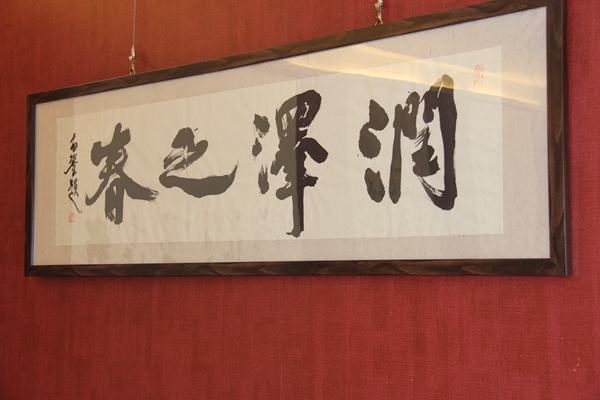 潤澤之春